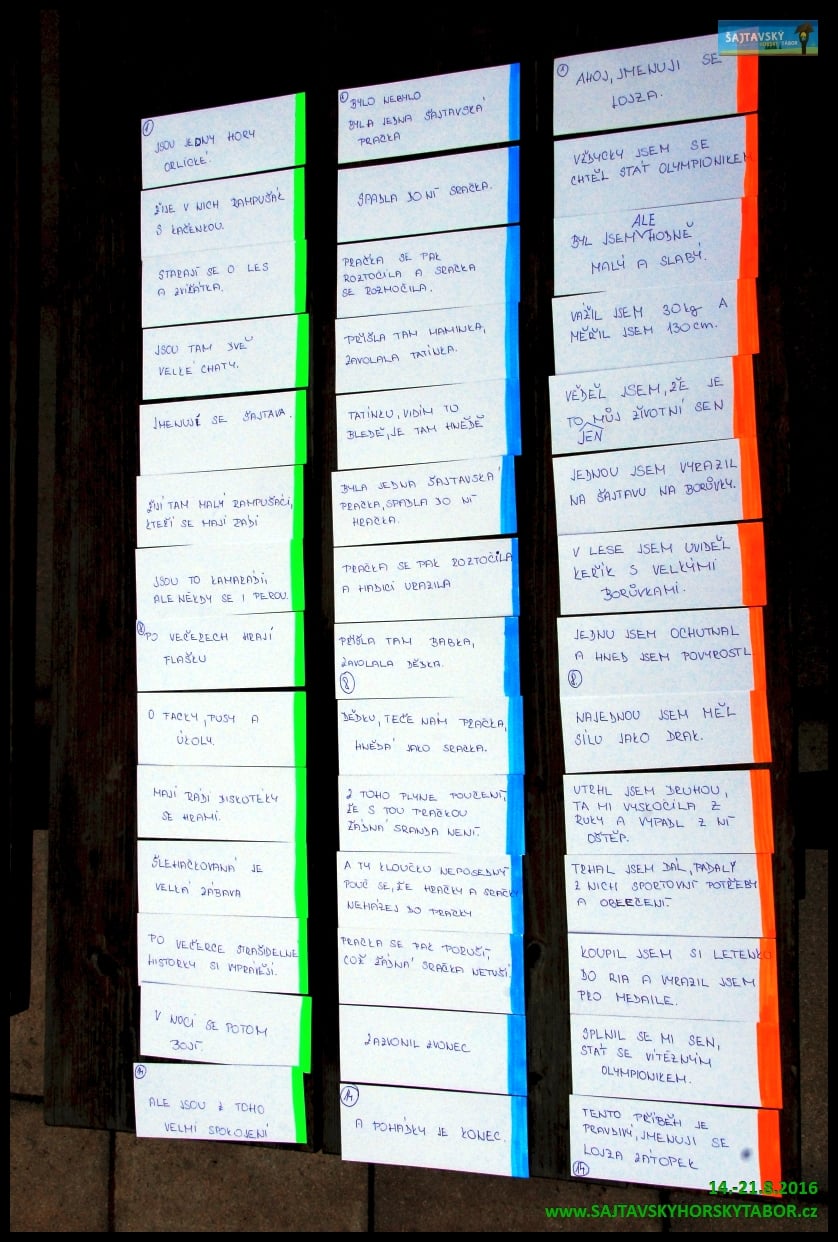 ŠAJTAVSKÝ
HORSKÝ TÁBOR
1
JSOU JEDNY HORY
ORLICKÉ.
ŽIJE V NICH RAMPUŠÁK
S KAČENKOU.
STARAJÍ SE O LES
A ZVÍŘÁTKA.
JSOU TAM DVĚ
VELKÉ CHATY.
JMENUJÍ SE ŠAJTAVA.
ŽIJÍ TAM MALÝ RAMPUŠÁČI,
KTEŘÍ SE MAJÍ RÁDI
JSOU TO KAMARÁDI,
ALE NĚKDY SE I PEROU.
8 PO VEČERECH HRAJÍ
FLAŠKU
O FACKY, PUSY A
ÚKOLY.
MAJÍ RÁDI DISKOTÉKY
SE HRAMI.
ŠLEHAČKOVANÁ JE
VELKÁ ZÁBAVA
PO VEČERCE STRAŠIDELNÉ
HISTORKY SI VYPRÁVĚJÍ.
V NOCI SE POTOM
BOJÍ.
14
ALE JSOU Z TOHO
VELMI SPOKOJENÍ
1 BYLO NEBYLO
BYLA JEDNA ŠAJTAVSKÁ
PRAČKA
SPADLA DO NÍ SRAČKA.
PRAČKA SE PAK
ROZTOČILA A SRAČKA
SE ROZMOČILA.
PŘIŠLA TAM MAMINKA,
ZAVOLALA TATÍNKA.
TATÍNKU, VIDÍM TO
BLEDĚ, JE TAM HNĚDĚ
BYLA JEDNA ŠAJTAVSKÁ
PRAČKA, SPADLA DO NÍ
HRAČKA.
PRAČKA SE PAK ROZTOČILA
A HADICÍ URAZILA
PŘIŠLA TAM BABKA,
ZAVOLALA DĚDKA.
8
DĚDKU, TEČE NÁM PRAČKA,
HNĚDÁ JAKO SRAČKA.
Z TOHO PLYNE POUČENÍ,
ŽE S TOU PRAČKOU
ŽÁDNÁ SRANDA NENÍ.
A TY KLOUČKU NEPOSEDNÝ
POUČ SE, ŽE HRAČKY A SRAČKY
NEHÁZEJ DO PRAČKY
PRAČKA SE PAK PORUŠÍ,
COŽ ŽÁDNÁ SRAČKA NETUŠÍ.
ZAZVONIL ZVONEC
14
A POHÁDKY JE KONEC.
1 AHOJ, JMENUJI SE
LOJZA.
VŽDYCKY JSEM SE
CHTĚL STÁT OLYMPIONIKEM
ALE
BYL JSEM HODNĚ
MALÝ A SLABÝ.
VÁŽIL JSEM 30 kg A
MĚŘIL JSEM 130 cm.
VĚDĚL JSEM, ŽE JE
TO MŮJ ŽIVOTNÍ SEN
JEN
JEDNOU JSEM VYRAZIL
NA ŠAJTAVU NA BORŮVKY.
V LESE JSEM UVIDĚL
KEŘÍK S VELKÝMI
BORŮVKAMI.
JEDNU JSEM OCHUTNAL
A HNED JSEM POVYROSTL
8
NAJEDNOU JSEM MĚL
SÍLU JAKO DRAK.
UTRHL JSEM DRUHOU,
TA MI VYSKOČILA Z
RUKY A VYPADL Z NÍ
OŠTĚP.
TRHAL JSEM DÁL, PADALY
Z NICH SPORTOVNÍ POTŘEBY
A OBLEČENÍ.
KOUPIL JSEM SI LETENKU
DO RIA A VYRAZIL JSEM
PRO MEDAILE.
SPLNIL SE MI SEN,
STÁT SE VÍTĚZNÝM
OLYMPIONIKEM.
TENTO PŘÍBĚH JE
PRAVDIVÝ, JMENUJI SE
LOJZA ZÁTOPEK
14
14.-21.8.2016
www.SAJTAVSKYHORSKYTABOR.cz